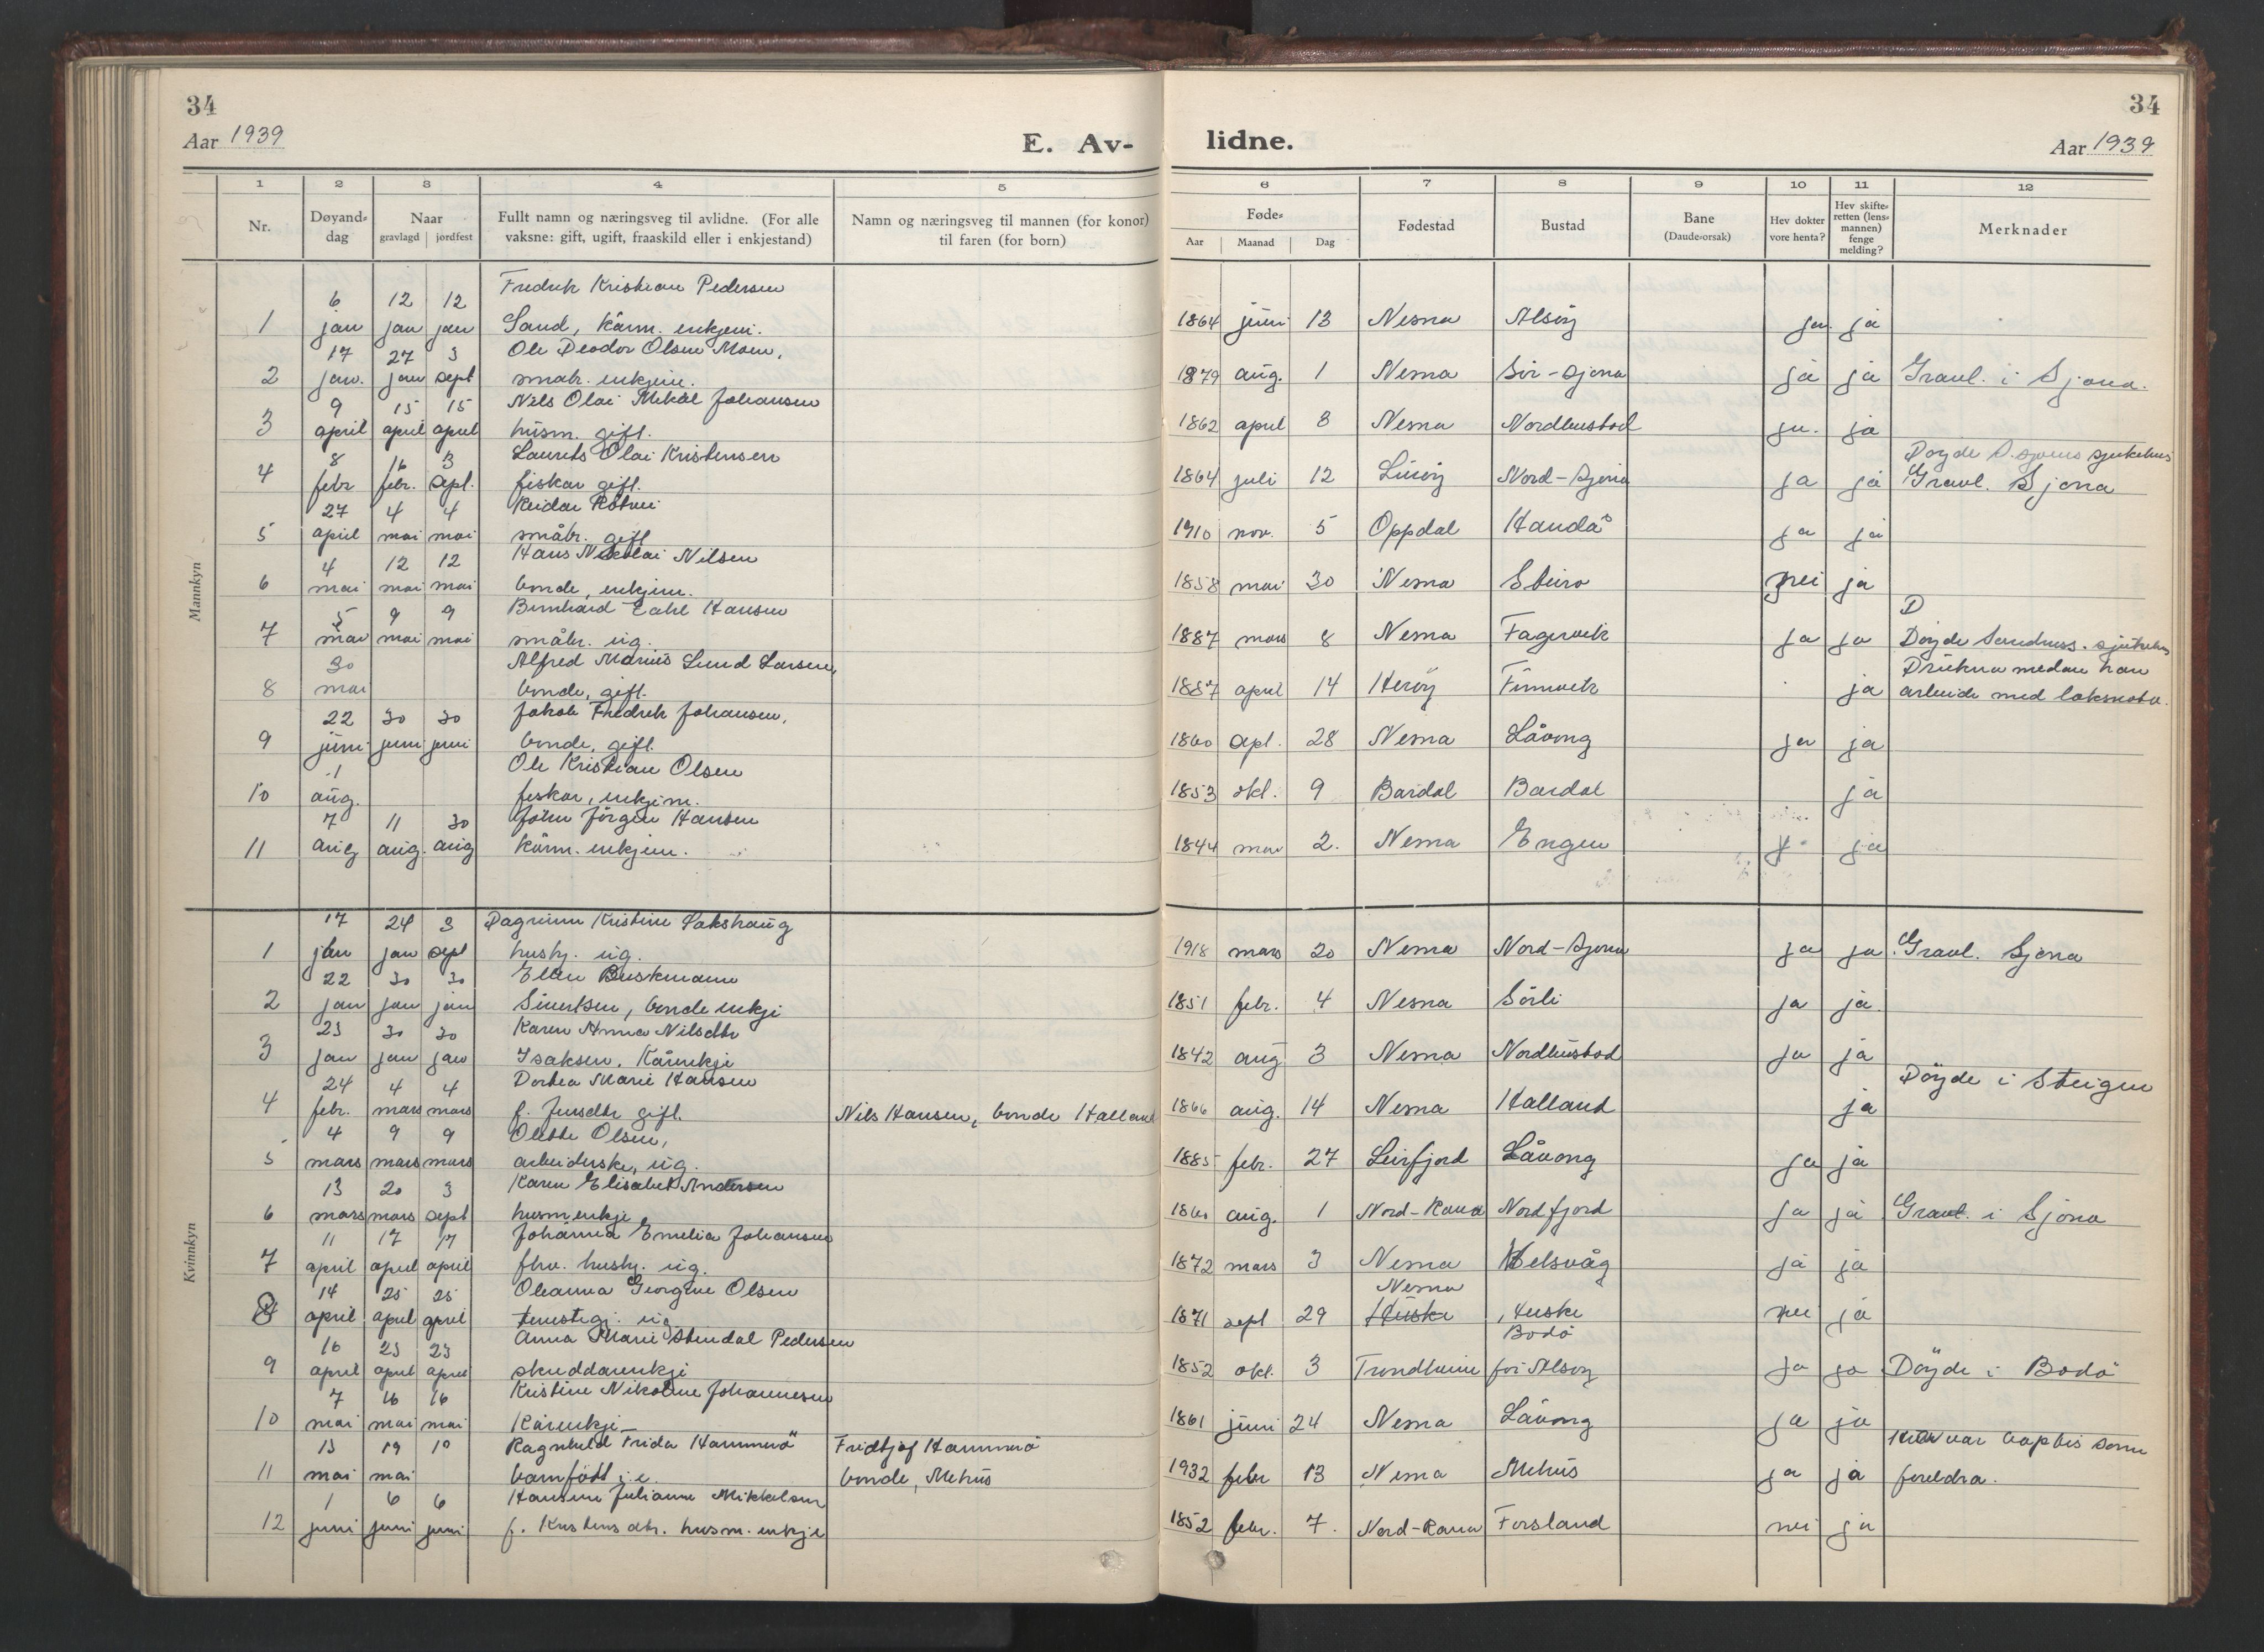 34
34
Aar 1939
E. Av-
lidne.
Aar 1939
1 2 3 4 5 6 7 8 9 10 11 12
Nr.
Døyand-
dag
Naar
gravlagd jordfest
Fullt namn og næringsveg til avlidne. (For alle
vaksne: gift, ugift, fraaskild eller i enkjestand)
Namn og næringsveg til mannen (for konor)
til faren (for born)
Føde-
Aar Maanad Dag
Fødestad
Bustad
Bane
(Daude-orsak)
Hev dokter
vore henta?
Hev skifte-
retten (lens-
mannen)
fenge
melding?
Merknader
Mannkyn
6 12 12 Fredrik Kristian Pedersen
1 jan jan jan Sand, kårm. enkjem. 1864 juni 13 Nesna Alsöy ja ja
17 27 3 Ole Peodor Olsen Moen,
2 jan. jan sept småbr. enkjem. 1879 aug. 1 Nesna Sör-Sjona ja ja Gravl. i Sjona.
9 15 15 Nils Olai Mikal Johansen
3 april april april husm. gift. 1862 april 8 Nesna Nordhustad ja. ja
8 16 3 Laurits Olai Kristensen Döyde sjukehus
4 febr febr. sept. fiskar gift. 1864 juli 12 Luröy Nord-Sjona ja ja Gravl. Sjona
27 4 4 Reidar
5 april mai mai småbr. gift 1910 nov. 5 Oppdal Handå ja ja
4 12 12 Hans Nikolai Nilsen
6 mai mai mai bonde, enkjem. 1858 mai 30 Nesna nei ja
5 9 9 Bernhard Hansen D
7 mai mai mai småbr. ug. 1887 mars 8 Nesna Fagervik ja ja Döyde Sandness. sjukehus
30 Alfred Marius Lund Larsen, Drukna medan han
8 mai bonde, gift. 1887 april 14 Heröy Finnvik ja arbeide med laksnota.
22 30 30 Jakob Fredrik Johansen,
9 juni juni juni bonde, gift. 1860 apl. 28 Nesna Låvong ja ja
1 Ole Kristian Olsen
10 aug. fiskar, enkjem. 1853 okt. 9 Bardal Bardal ja
7 11 30 Johan Jörgen Hansen
11 aug aug. aug kårm. enkjem. 1844 mai 2. Nesna Engen ja
Kvinnkyn
17 24 3 Dagrunn Kristine Sakshaug
1 jan jan sept hushj. ug. 1918 mars 20 Nesna Nord-Sjona ja ja Gravl. Sjona
22 30 30 Ellen Buskmann
2 jan jan jan Sivertsen, bonde enkje 1851 febr. 4 Nesna Sörli ja ja
23 30 30 Karen Anna Nilsdtr
3 jan jan jan Isaksen. Kårenkje 1842 aug 3 Nesna Nordhustad ja ja
24 4 4 Dortea Marie Hansen Döyde i Steigen
4 febr. mars mars f. Jensdtr gift. Nils Hansen, bonde Halland 1866 aug. 14 Nesna Halland ja
4 9 9 Olette Olsen,
5 mars mars mars arbeiderske, ug. 1885 febr. 27 Leirfjord Låvong ja ja
13 20 3 Karen Elisabet Andersen
6 mars mars sept husm enkje 1860 aug. 1 Nord-Rana Nordfjord ja ja Gravl. i Sjona
11 17 17 Johanna Emelia Johansen
7 april april april fhv. hushj. ug. 1872 mars 3 Nesna Helsvåg ja ja
14 25 25 Oleanna Georgine Olsen Nesna
8 april april april tenestegj. ug 1871 sept 29 Huske Huske nei ja
16 23 23 Anna Marie Stendal Pedersen Bodö
9 april april april skreddarenkje 1852 okt. 3 Trondheim för Alsöy ja ja Döyde i Bodö
7 16 16 Kristine Nikoline Johannesen
10 mai mai mai Kårenkje 1861 juni 24 Nesna Låvong ja ja
13 19 19 Ragnhild Frida Hammerö Fridtjof Hammerö var baptis som
11 mai mai barn född i e. bonde, Mehus 1932 febr 13 Nesna Mehus ja ja foreldra.
1 6 6 Hansine Julianne Mikkelsen
12 juni juni juni f. Kristensdtr. husm. enkje 1852 febr. 7. Nord-Rana Forsland nei ja